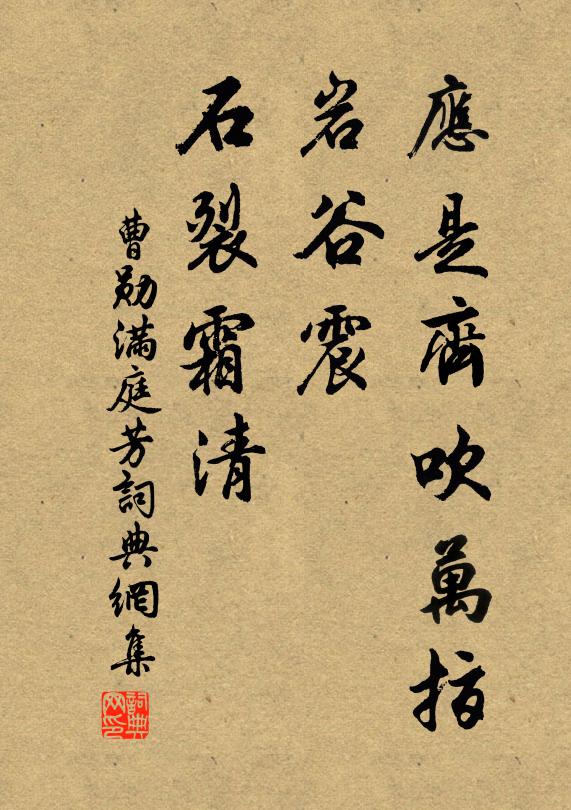 應是齊吹萬指
岩谷震
石裂霜清
曹勛滿庭芳詞典網集
詞典网印